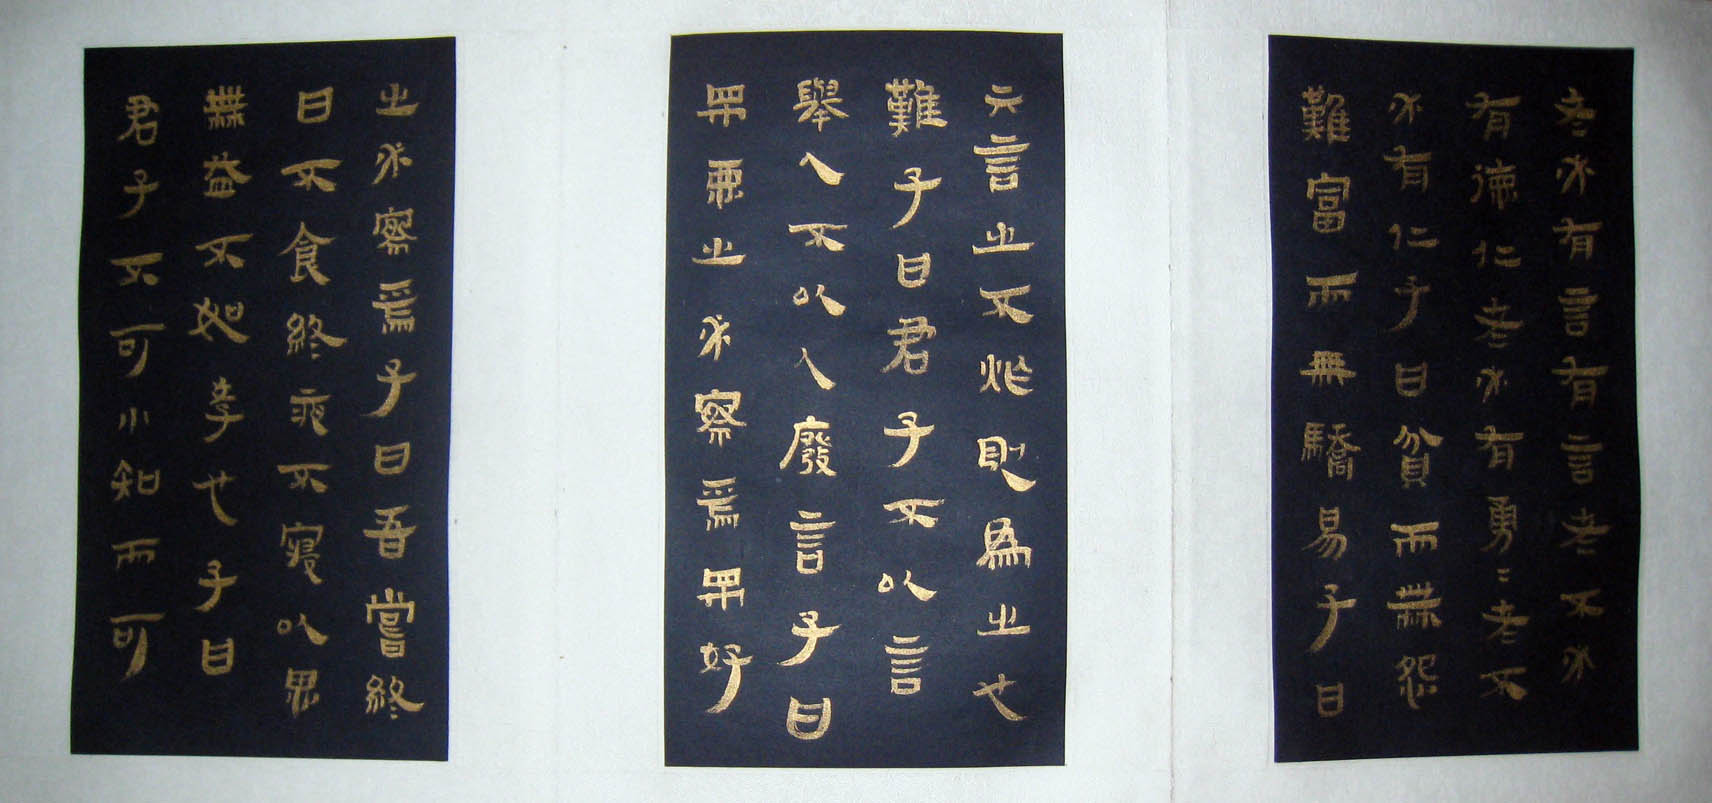 者必有言有言者不必
有德仁者必有勇〻者不
必有仁子曰貧而無怨
難富而無驕易子曰
亓言之不怍則為之也
難子曰君子不以言
舉人不以人廢言子曰
眾惡之必察焉眾好
之必察焉子曰吾嘗終
日不食終夜不寢以思
無益不如學也子曰
君子不可小知而可